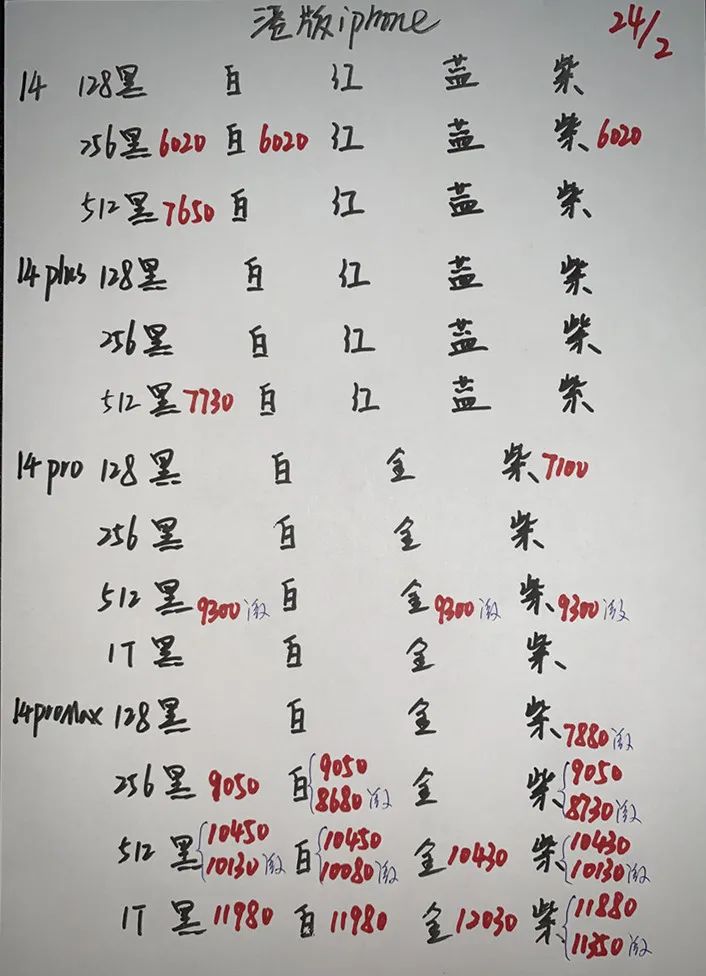 港版iphone 24/2
14 128黑 白 红 蓝 柴
256黑6020 白6020 红 蓝 柴6020
512黑7650 白 红 蓝 柴
14plus 128黑 白 红 蓝 柴
256黑 白 红 蓝 柴
512黑7730 白 红 蓝 柴
14pro 128黑 白 金 柴7100
256黑 白 金 柴
512黑9300激 白 金9300激 柴9300激
1T黑 白 金 柴
14proMax 128黑 白 金 柴7880激
256黑9050 白{9050 8680激 金 柴{9050 8730激
512黑{10450 10130激 白{10450 10080激 金10430 柴{10430 10130激
1T黑11980 白11980 金12030 柴{11880 11350激